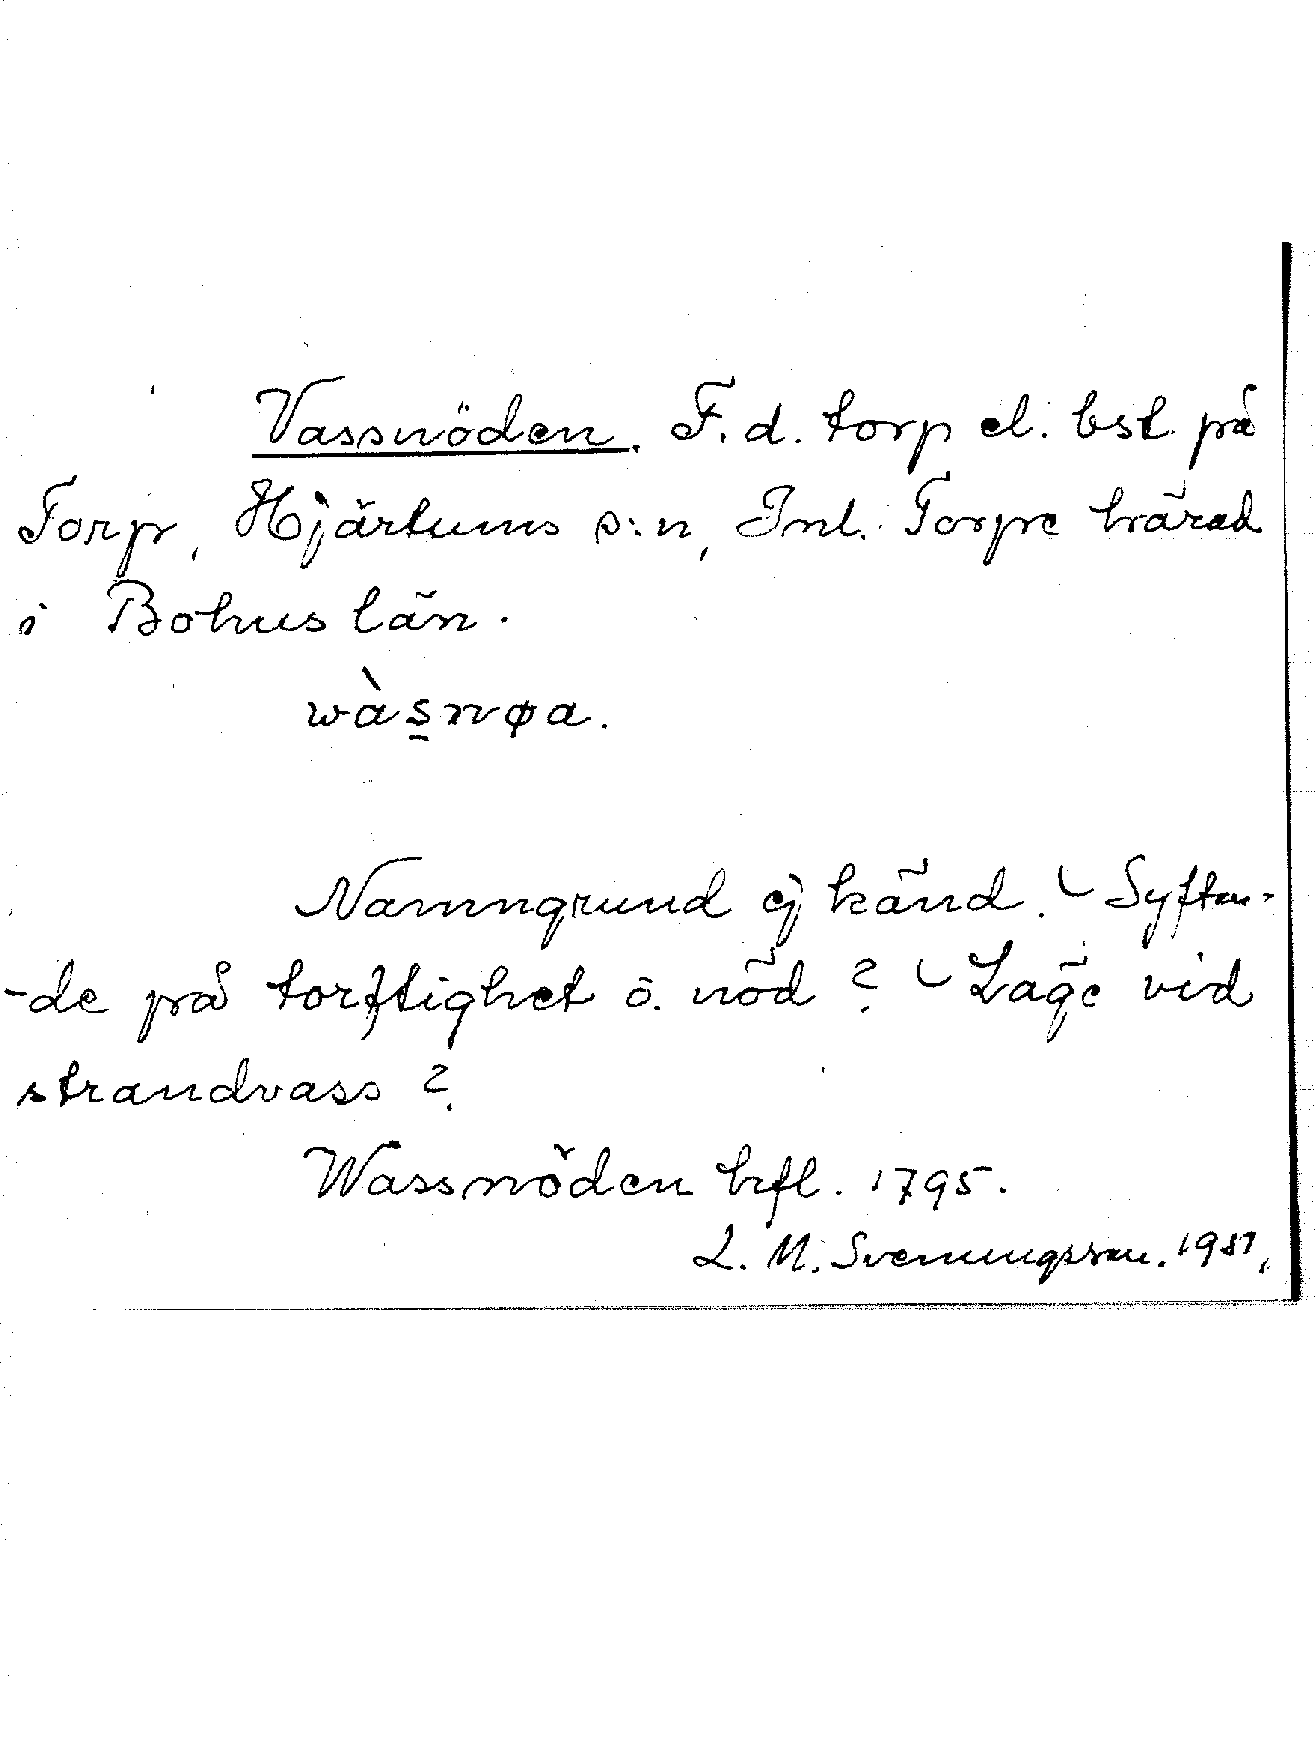 Vassnöden. F. d. torp el. bst. på
Torp, Hjärtums s:n, Inl. Torpe härad
i Bohus län.
wàs̱nøa.
Namngrund ej känd. Syftan-
-de på torftighet o. nöd? Läge vid
strandvass?
Wassnöden hfl. 1795.
L. M. Svenungsson.